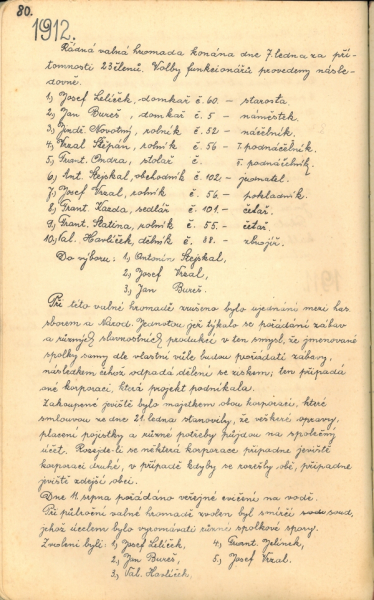 80.
1912.
Řádná valná hromada konána dne 7. ledna za pří-
tomnosti 23 členů. Volby funkcionářů provedeny násle-
dovně.
1, Josef Lelíček, domkář č. 60. – starosta.
2, Jan Bureš, domkář č. 5 – náměstek.
3, Jindř. Novotný, rolník č. 52 – náčelník.
4, Vrzal Štěpán, rolník č. 56 – I. podnáčelník.
5, Frant. Ondra, stolař č. II. podnáčelník.
6, Ant. Stejskal, obchodník č. 102 – jednatel.
7, Josef Vrzal, rolník č. 56. – pokladník.
8, Frant. Kazda, sedlář č. 101. – četař.
9, Frant. Slatina, rolník č. 55. – četař.
10, Val. Havlíček, dělník č. 88. – zbrojíř.
Do výboru: 1, Antonín Stejskal,
2, Josef Vrzal,
3, Jan Bureš.
Při této valné hromadě zrušeno bylo ujednání mezi has.
sborem a Národ. Jednotou jež týkalo se pořádání zábav
a různých slavnostních produkcí v ten smysl, že jmenované
spolky samy dle vlastní vůle budou pořádati zábavy,
následkem čehož odpadá dělení se ziskem; ten připadá
oné korporaci, která projekt podnikala.
Zakoupené jeviště bylo majetkem obou korporací, které
smlouvou ze dne 21. ledna stanovily, že veškeré opravy,
placení pojistky a různé potřeby půjdou na společný
účet. Rozejde-li se některá korporace připadne jeviště
korporaci druhé, v případě kdyby se rozešly obě, připadne
jeviště zdejší obci.
Dne 11. srpna pořádáno veřejné cvičení na vodě.
Při půlroční valné hromadě zvolen byl smírčí soud,
jehož účelem bylo vyrovnávati různé spolkové spory.
Zvoleni byli: 1, Josef Lelíček, 4, Frant. Jelínek,
2, Jan Bureš, 5, Josef Vrzal.
3, Val. Havlíček.